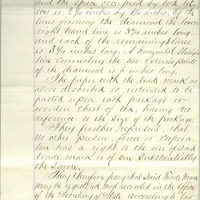 and the space occupied by said
are is 2 5/8 inches by the
lines forming the diamond the lower
right hand line is 3 7/8 inches long,
and each of the remaining lines
is 3 5/8 inches long. A
line connecting the two
of the diamond is 6 inches long.
The paper with the trade mark as
above described is intended to be
pasted upon each package or
wooden chest of tea, having no
reference to the size of the package.
They further represent, that
no other person, firm or corporation
has a right to the use of said
trade mark or of one substantially
the same.
They therefore pray that said Trade Mark
may be registered and recorded in the office
of the Secretary of State according to law